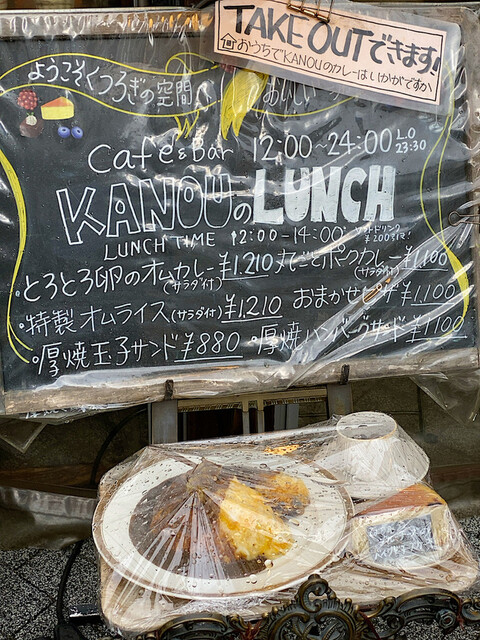 TAKE OUTできます!
おうちでKANOUのカレーはいかがですか
ようこそくつろぎの空間へ! おいしい
Café&Bar 12:00~24:00 L.O 23:30
KANOUのLUNCH
LUNCH TIME 12:00-14:00
・とろとろ卵のオムカレー(サラダ付) ¥1,210
丸ごとポークカレー(サラダ付) ¥1,100
・特製オムライス(サラダ付) ¥1,210
おまかせピザ ¥1,100
・厚焼玉子サンド ¥880
・厚焼ハンバーグサンド ¥1,100